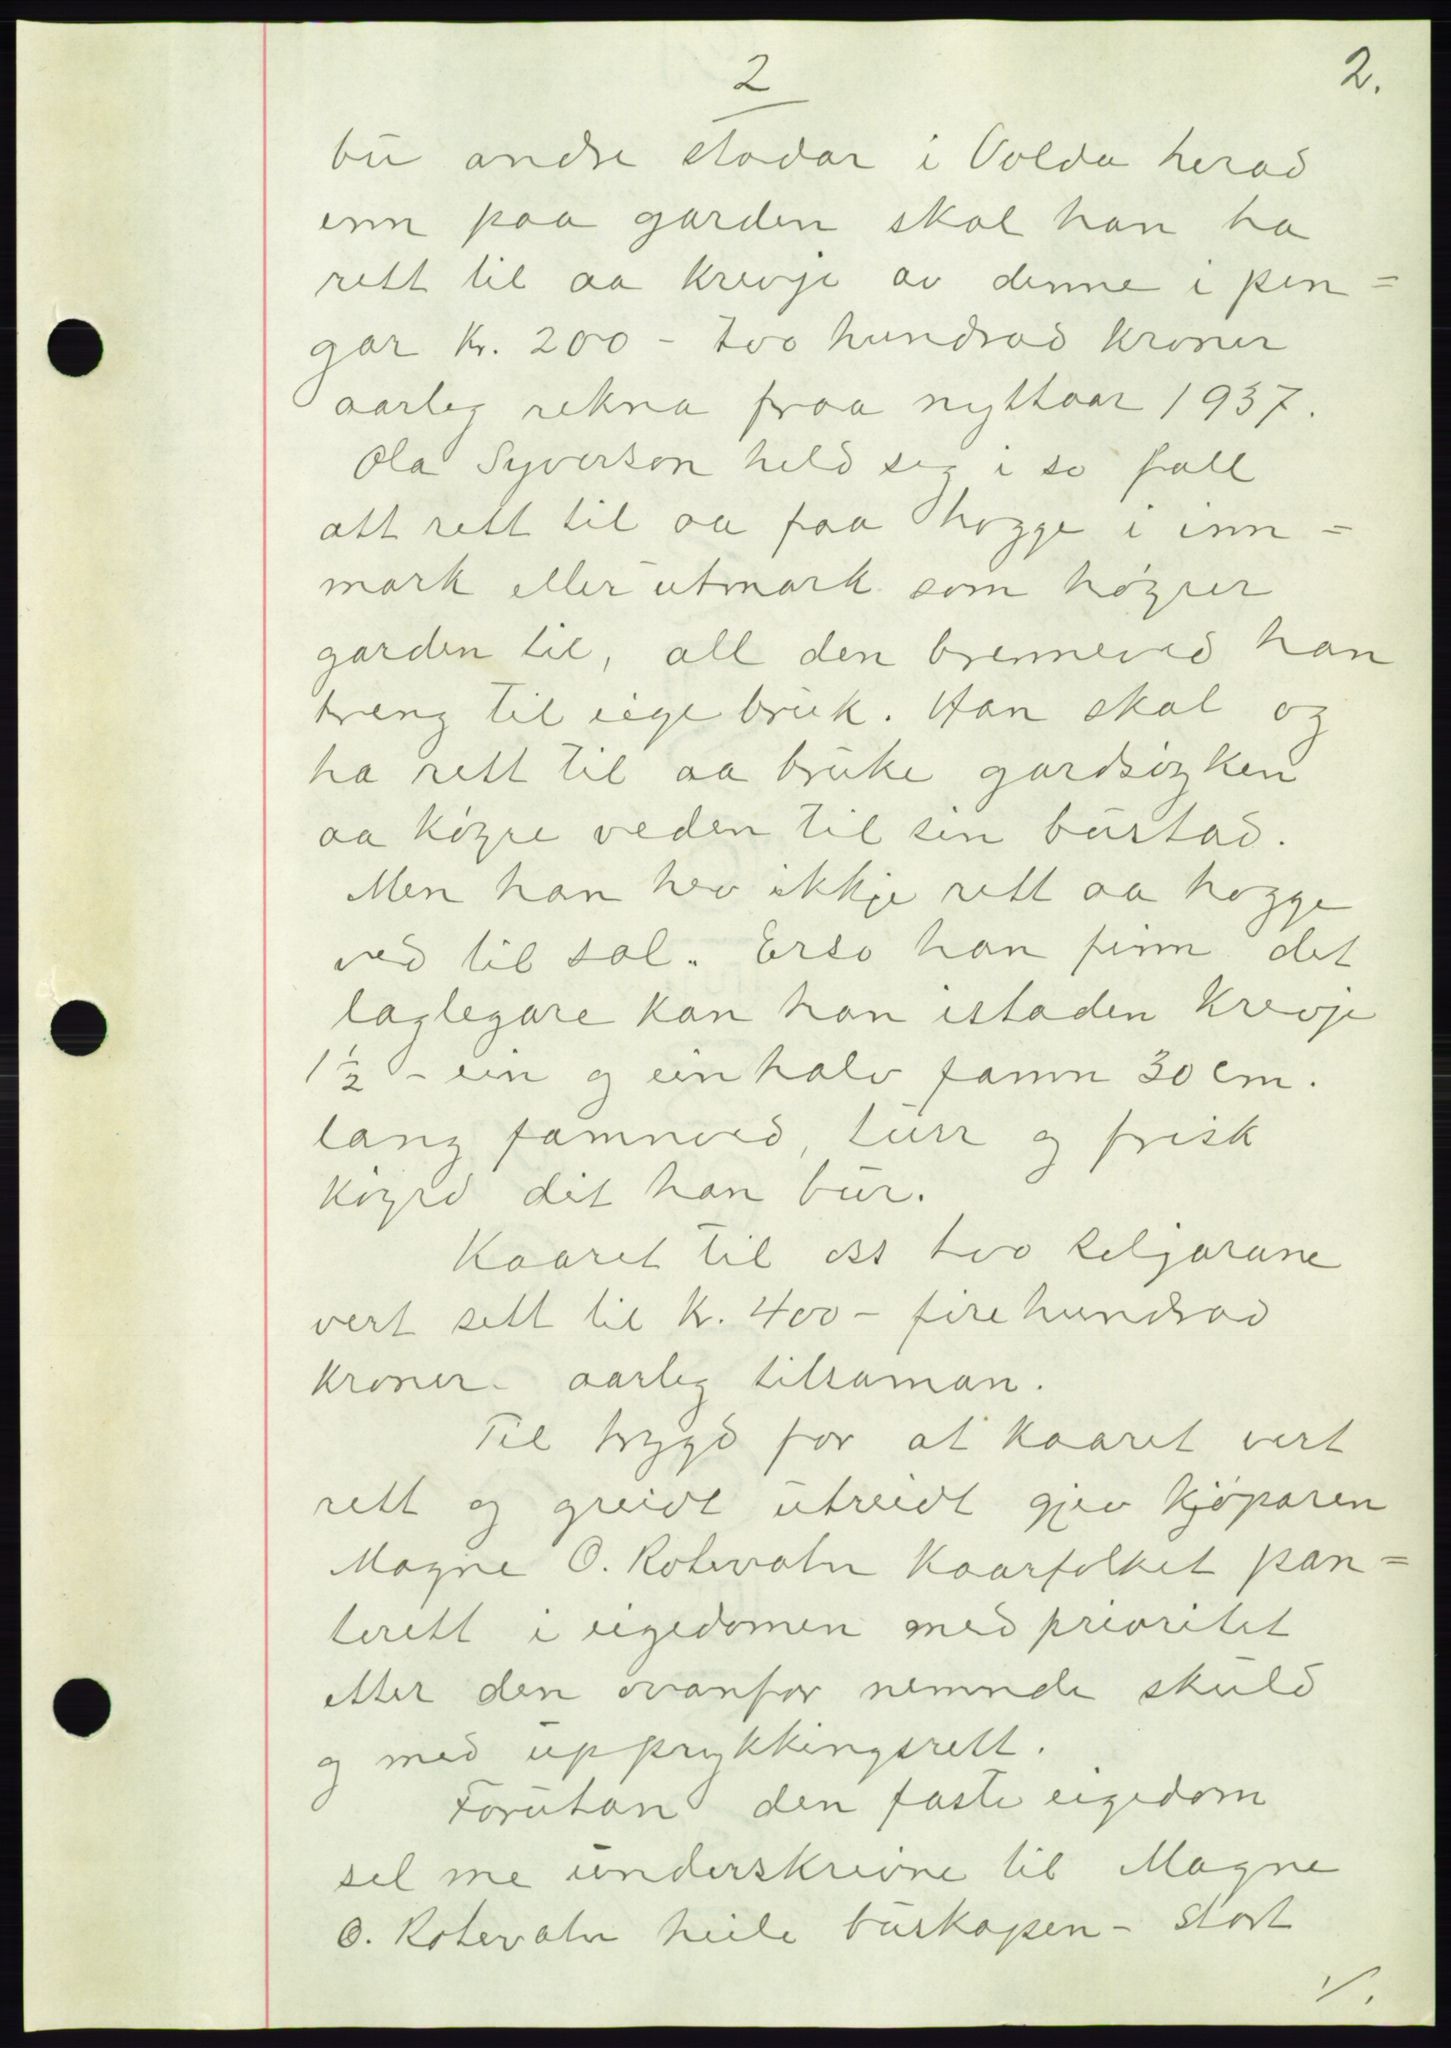 2
2.
bu andre stadar i Volda herad
enn paa garden skal han ha
rett til aa krevje av denne i pen=
gar kr. 200 - tvo hundrad kroner
aarleg rekna fraa nyttaar 1937.
Ola Syverson held seg i so fall
att rett til aa faa hogge i inn=
mark eller utmark som høyrer
garden til, all den brenneved han
treng til eige bruk. Han skal og
ha rett til aa bruke gardsøyken
aa køyre veden til sin bustad.
Men han hev ikkje rett aa hogge
ved til sal. Erso han finn det
laglegare kan han istaden krevje
1½ - ein og ein halv famn 30 cm.
lang famnved, turr og frisk
køyrd dit han bur.
Kaaret til oss tvo seljarane
vert sett til kr. 400 - firehundrad
kroner - aarleg tilsaman.
Til trygd for at kaaret vert
rett og greidt utreidt gjev kjøparen
Magne O. Rotevatn kaarfolket pan=
terett i eigedomen med prioritet
etter den ovanfor nemnde skuld
og med upprykkingsrett.
Forutan den faste eigedom
sel me underskrivne til Magne
O. Rotevatn heile buskapen - stort
./.